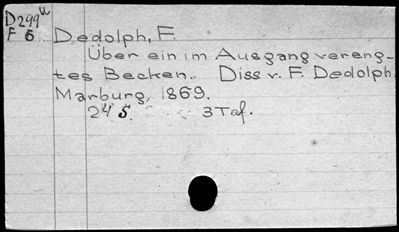 D299u
F6 Dedolph, F.
Über ein im Ausgang vereng-
tes Becken. Diss v. F. Dedolph.
Marburg, 1869.
24 S. 3 Taf.